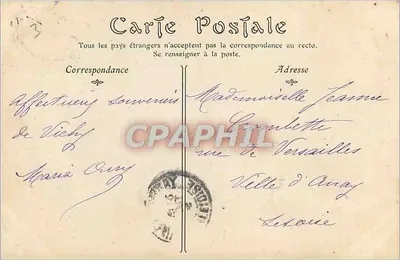 Carte Postale
Tous les pays étrangers n'acceptent pas la correspondance au recto.
Se renseigner à la poste.
Correspondance
Adresse
Affectueux souvenirs
de Vichy
Maria
Mademoiselle Jeanne
rue de Versailles
Ville d'Avray
CPAPHIL